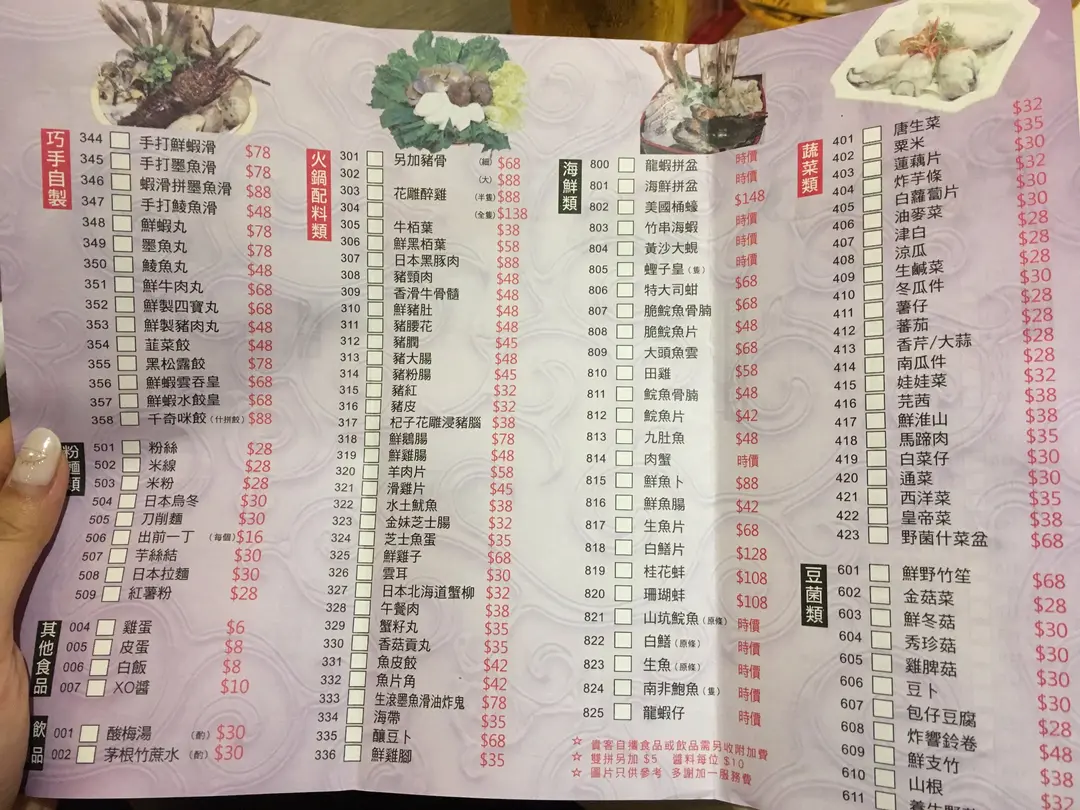 巧手自製
344 手打鮮蝦滑 $78
345 手打墨魚滑 $78
346 蝦滑拼墨魚滑 $88
347 手打鯪魚滑 $48
348 鮮蝦丸 $78
349 墨魚丸 $78
350 鯪魚丸 $48
351 鮮牛肉丸 $68
352 鮮製四寶丸 $68
353 鮮製豬肉丸 $48
354 韮菜餃 $48
355 黑松露餃 $78
356 鮮蝦雲吞皇 $68
357 鮮蝦水餃皇 $68
358 千奇咪餃(什拼餃) $88
粉麵類
501 粉絲 $28
502 米線 $28
503 米粉 $28
504 日本烏冬 $30
505 刀削麵 $30
506 出前一丁(每個) $16
507 芋絲結 $30
508 日本拉麵 $30
509 紅薯粉 $28
其他食品
004 雞蛋 $6
005 皮蛋 $8
006 白飯 $8
007 XO醬 $10
飲品
001 酸梅湯 (酌) $30
002 茅根竹蔗水 (酌) $30
火鍋配料類
301 另加豬骨 (細) $68
302 (大) $88
303 花雕醉雞 (半隻) $88
304 (全隻) $138
305 牛栢葉 $38
306 鮮黑栢葉 $58
307 日本黑豚肉 $88
308 豬頸肉 $48
309 香滑牛骨髓 $48
310 鮮豬肚 $48
311 豬腰花 $48
312 豬膶 $45
313 豬大腸 $48
314 豬粉腸 $45
315 豬紅 $32
316 豬皮 $32
317 杞子花雕浸豬腦 $38
318 鮮鵝腸 $78
319 鮮雞腸 $48
320 羊肉片 $58
321 滑雞片 $45
322 水土魷魚 $38
323 金妹芝士腸 $32
324 芝士魚蛋 $35
325 鮮雞子 $68
326 雲耳 $30
327 日本北海道蟹柳 $32
328 午餐肉 $38
329 蟹籽丸 $35
330 香菇貢丸 $35
331 魚皮餃 $42
332 魚片角 $42
333 生滾墨魚滑油炸鬼 $78
334 海帶 $35
335 釀豆卜 $68
336 鮮雞腳 $35
海鮮類
800 龍蝦拼盆 時價
801 海鮮拼盆 時價
802 美國桶蠔 $148
803 竹串海蝦 時價
804 黃沙大蜆 時價
805 蟶子皇(隻) 時價
806 特大司蚶 $68
807 脆鯇魚骨腩 $68
808 脆鯇魚片 $48
809 大頭魚雲 $68
810 田雞 $58
811 鯇魚骨腩 $48
812 鯇魚片 $42
813 九肚魚 $48
814 肉蟹 時價
815 鮮魚卜 $88
816 鮮魚腸 $42
817 生魚片 $68
818 白鱔片 $128
819 桂花蚌 $108
820 珊瑚蚌 $108
821 山坑鯇魚(原條) 時價
822 白鱔(原條) 時價
823 生魚(原條) 時價
824 南非鮑魚(隻) 時價
825 龍蝦仔 時價
☆ 貴客自攜食品或飲品需另收附加費
☆ 雙拼另加 $5 醬料每位 $10
☆ 圖片只供參考 多謝加一服務費
蔬菜類
401 唐生菜 $32
402 粟米 $35
403 蓮藕片 $30
404 炸芋條 $32
405 白蘿蔔片 $30
406 油麥菜 $30
407 津白 $28
408 涼瓜 $28
409 生鹹菜 $28
410 冬瓜件 $30
411 薯仔 $28
412 蕃茄 $28
413 香芹/大蒜 $28
414 南瓜件 $28
415 娃娃菜 $32
416 芫茜 $38
417 鮮淮山 $38
418 馬蹄肉 $35
419 白菜仔 $30
420 通菜 $30
421 西洋菜 $35
422 皇帝菜 $38
423 野菌什菜盆 $68
豆菌類
601 鮮野竹笙 $68
602 金菇菜 $28
603 鮮冬菇 $30
604 秀珍菇 $30
605 雞脾菇 $30
606 豆卜 $30
607 包仔豆腐 $28
608 炸響鈴卷 $48
609 鮮支竹 $38
610 山根 $32
611